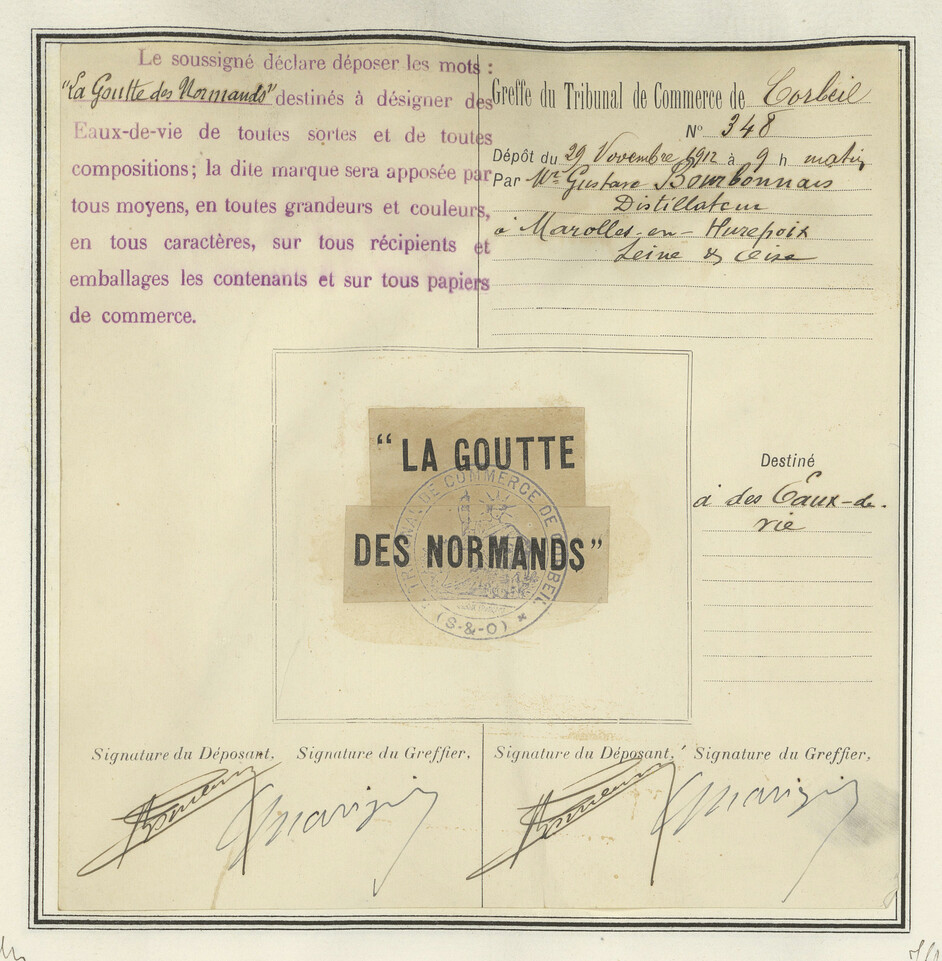 Le soussigné déclare déposer les mots :
"La Goutte des Normands" destinés à désigner des
Eaux-de-vie de toutes sortes et de toutes
compositions; la dite marque sera apposée par
tous moyens, en toutes grandeurs et couleurs,
en tous caractères, sur tous récipients et
emballages les contenants et sur tous papiers
de commerce.
Greffe du Tribunal de Commerce de Corbeil
N° 348
Dépôt du 29 Novembre 1912 à 9 h matin
Par Mr Gustave Bourbonnais
Distillateur
à Marolles-en-Hurepoix
Seine & Oise
"LA GOUTTE
DES NORMANDS"
TRIBUNAL DE COMMERCE DE CORBEIL
(S-&-O)
Destiné
à des Eaux-de-
vie
Signature du Déposant, Signature du Greffier,
Signature du Déposant, Signature du Greffier,